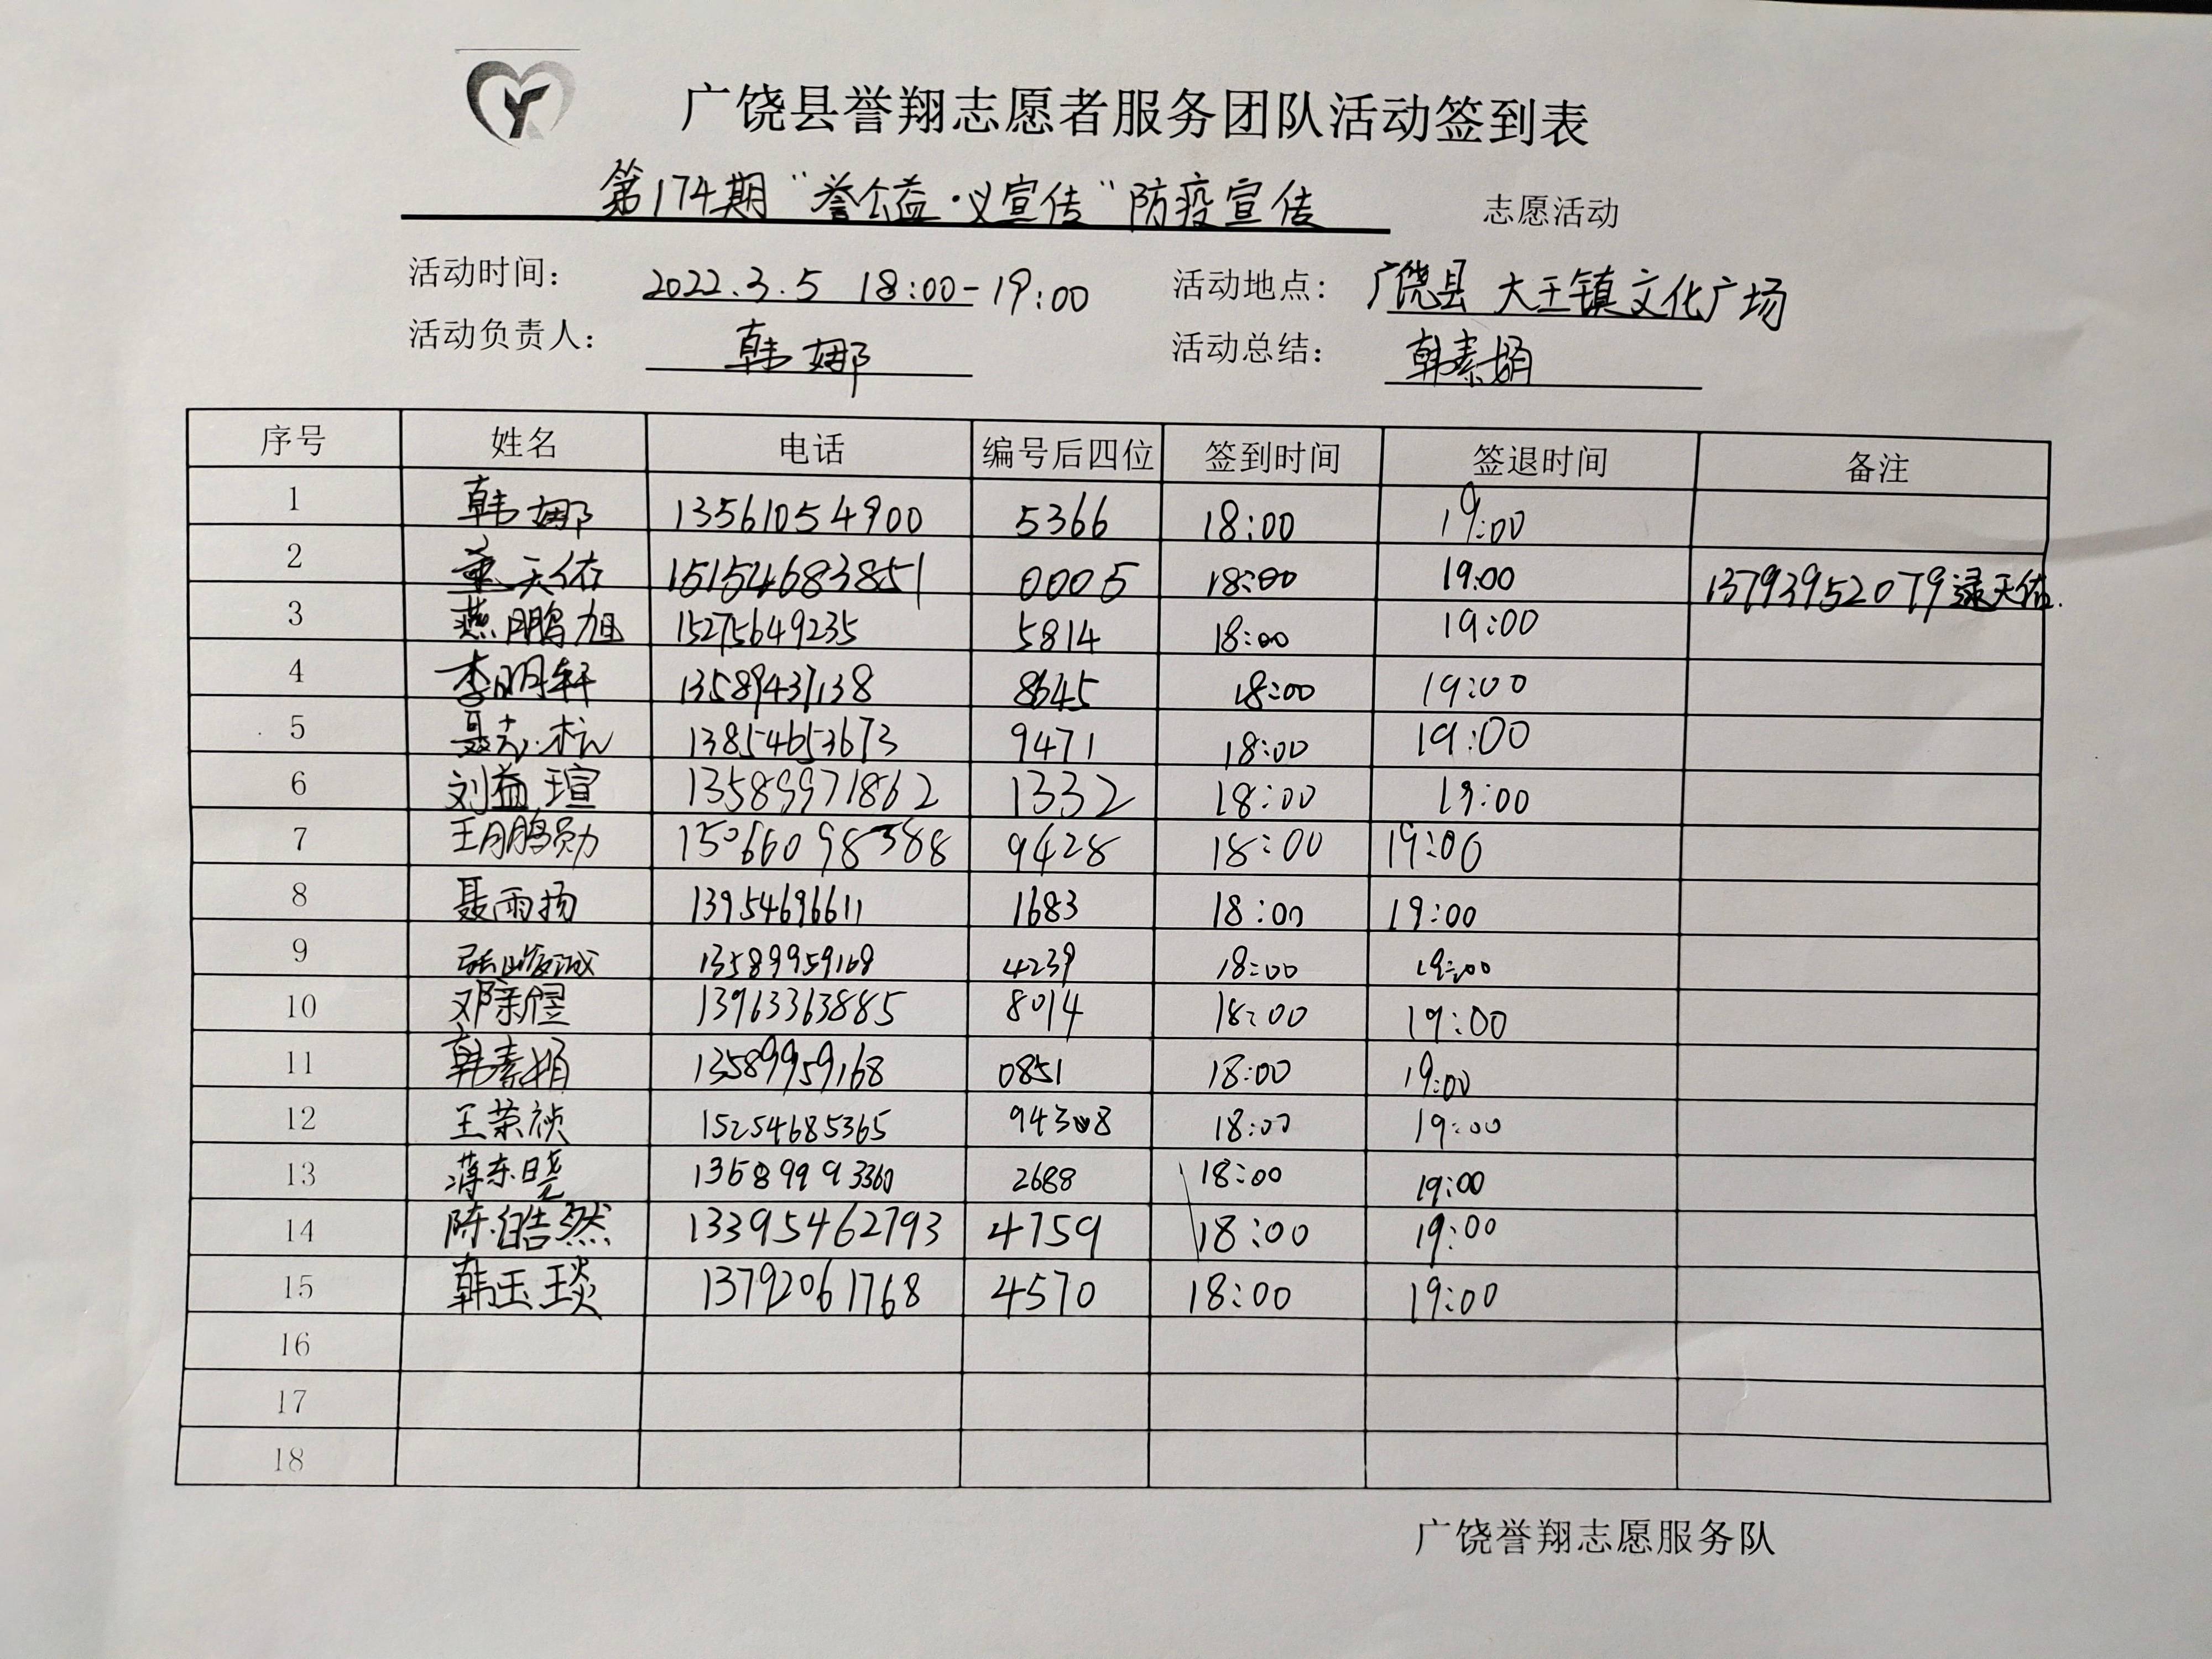 广饶县誉翔志愿者服务团队活动签到表
第174期“誉公益·义宣传”防疫宣传 志愿活动
活动时间： 2022.3.5 18:00-19:00 活动地点： 广饶县 大王镇文化广场
活动负责人： 韩娜 活动总结： 韩素娟
序号 姓名 电话 编号后四位 签到时间 签退时间 备注
1 韩娜 13561054900 5366 18:00 19:00
2 天佑 15154683851 0005 18:00 19:00 13793952079 天佑
3 燕鹏旭 15275649235 5814 18:00 19:00
4 李明轩 13589437138 8645 18:00 19:00
5 聂志杭 13854653673 9471 18:00 19:00
6 刘益瑄 13589971862 1332 18:00 19:00
7 王鹏勋 15066098388 9428 18:00 19:00
8 聂雨扬 13954696611 1683 18:00 19:00
9 张峻诚 13589959168 4239 18:00 19:00
10 邓新煜 13963363885 8014 18:00 19:00
11 韩素娟 13589959168 0851 18:00 19:00
12 王荣祯 15254685365 18:00 19:00
13 蒋东晓 13589993360 2688 18:00 19:00
14 陈皓然 13395462793 4759 18:00 19:00
15 韩玉琰 13792061768 4570 18:00 19:00
16
17
18
广饶誉翔志愿服务队